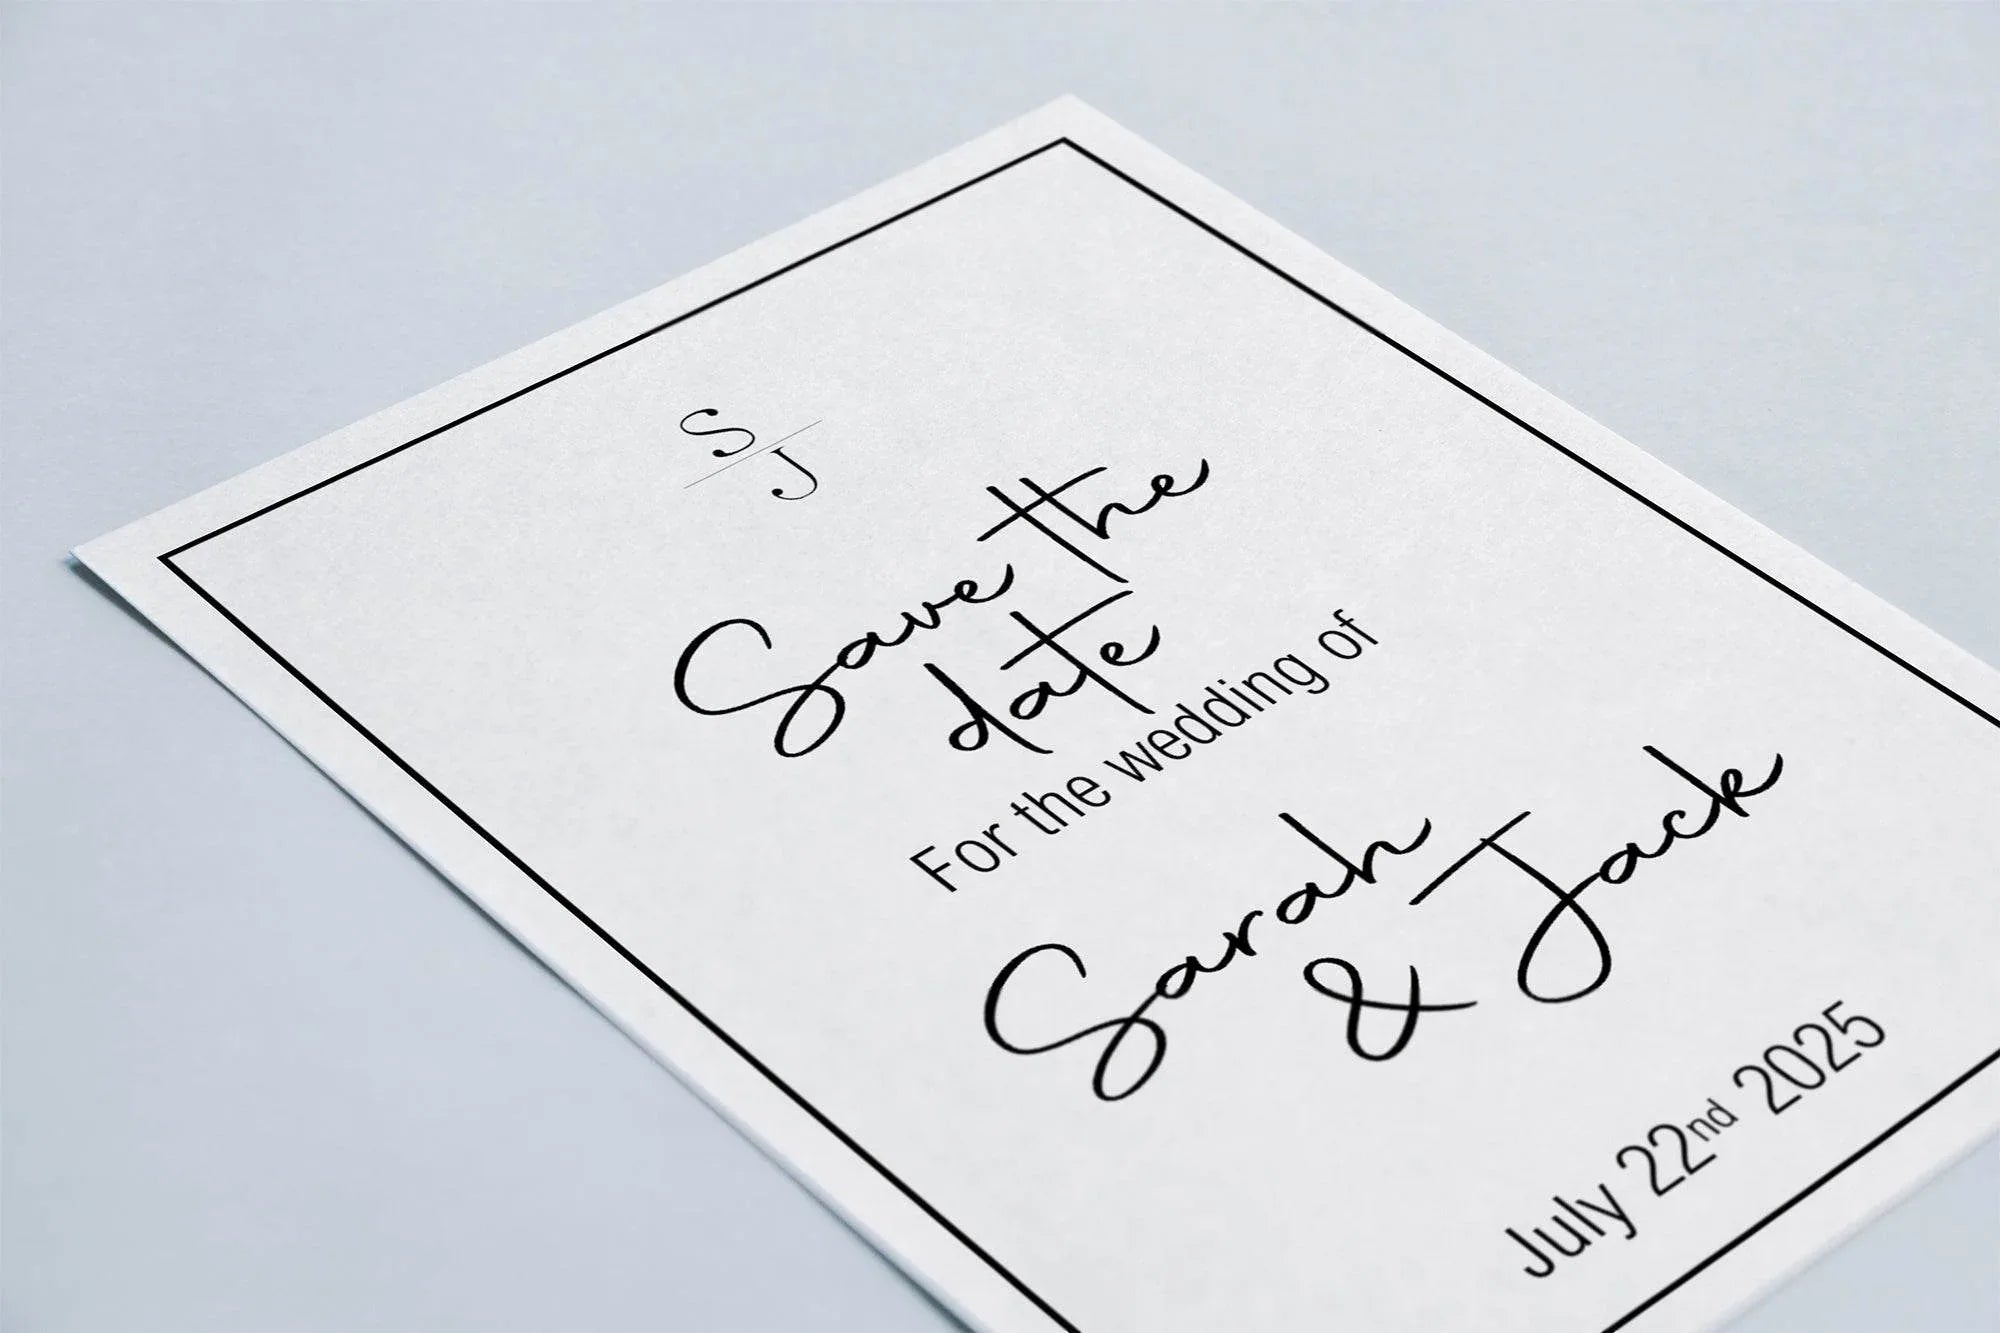 S
J
Save the
date
For the wedding of
Sarah
& Jack
July 22nd 2025